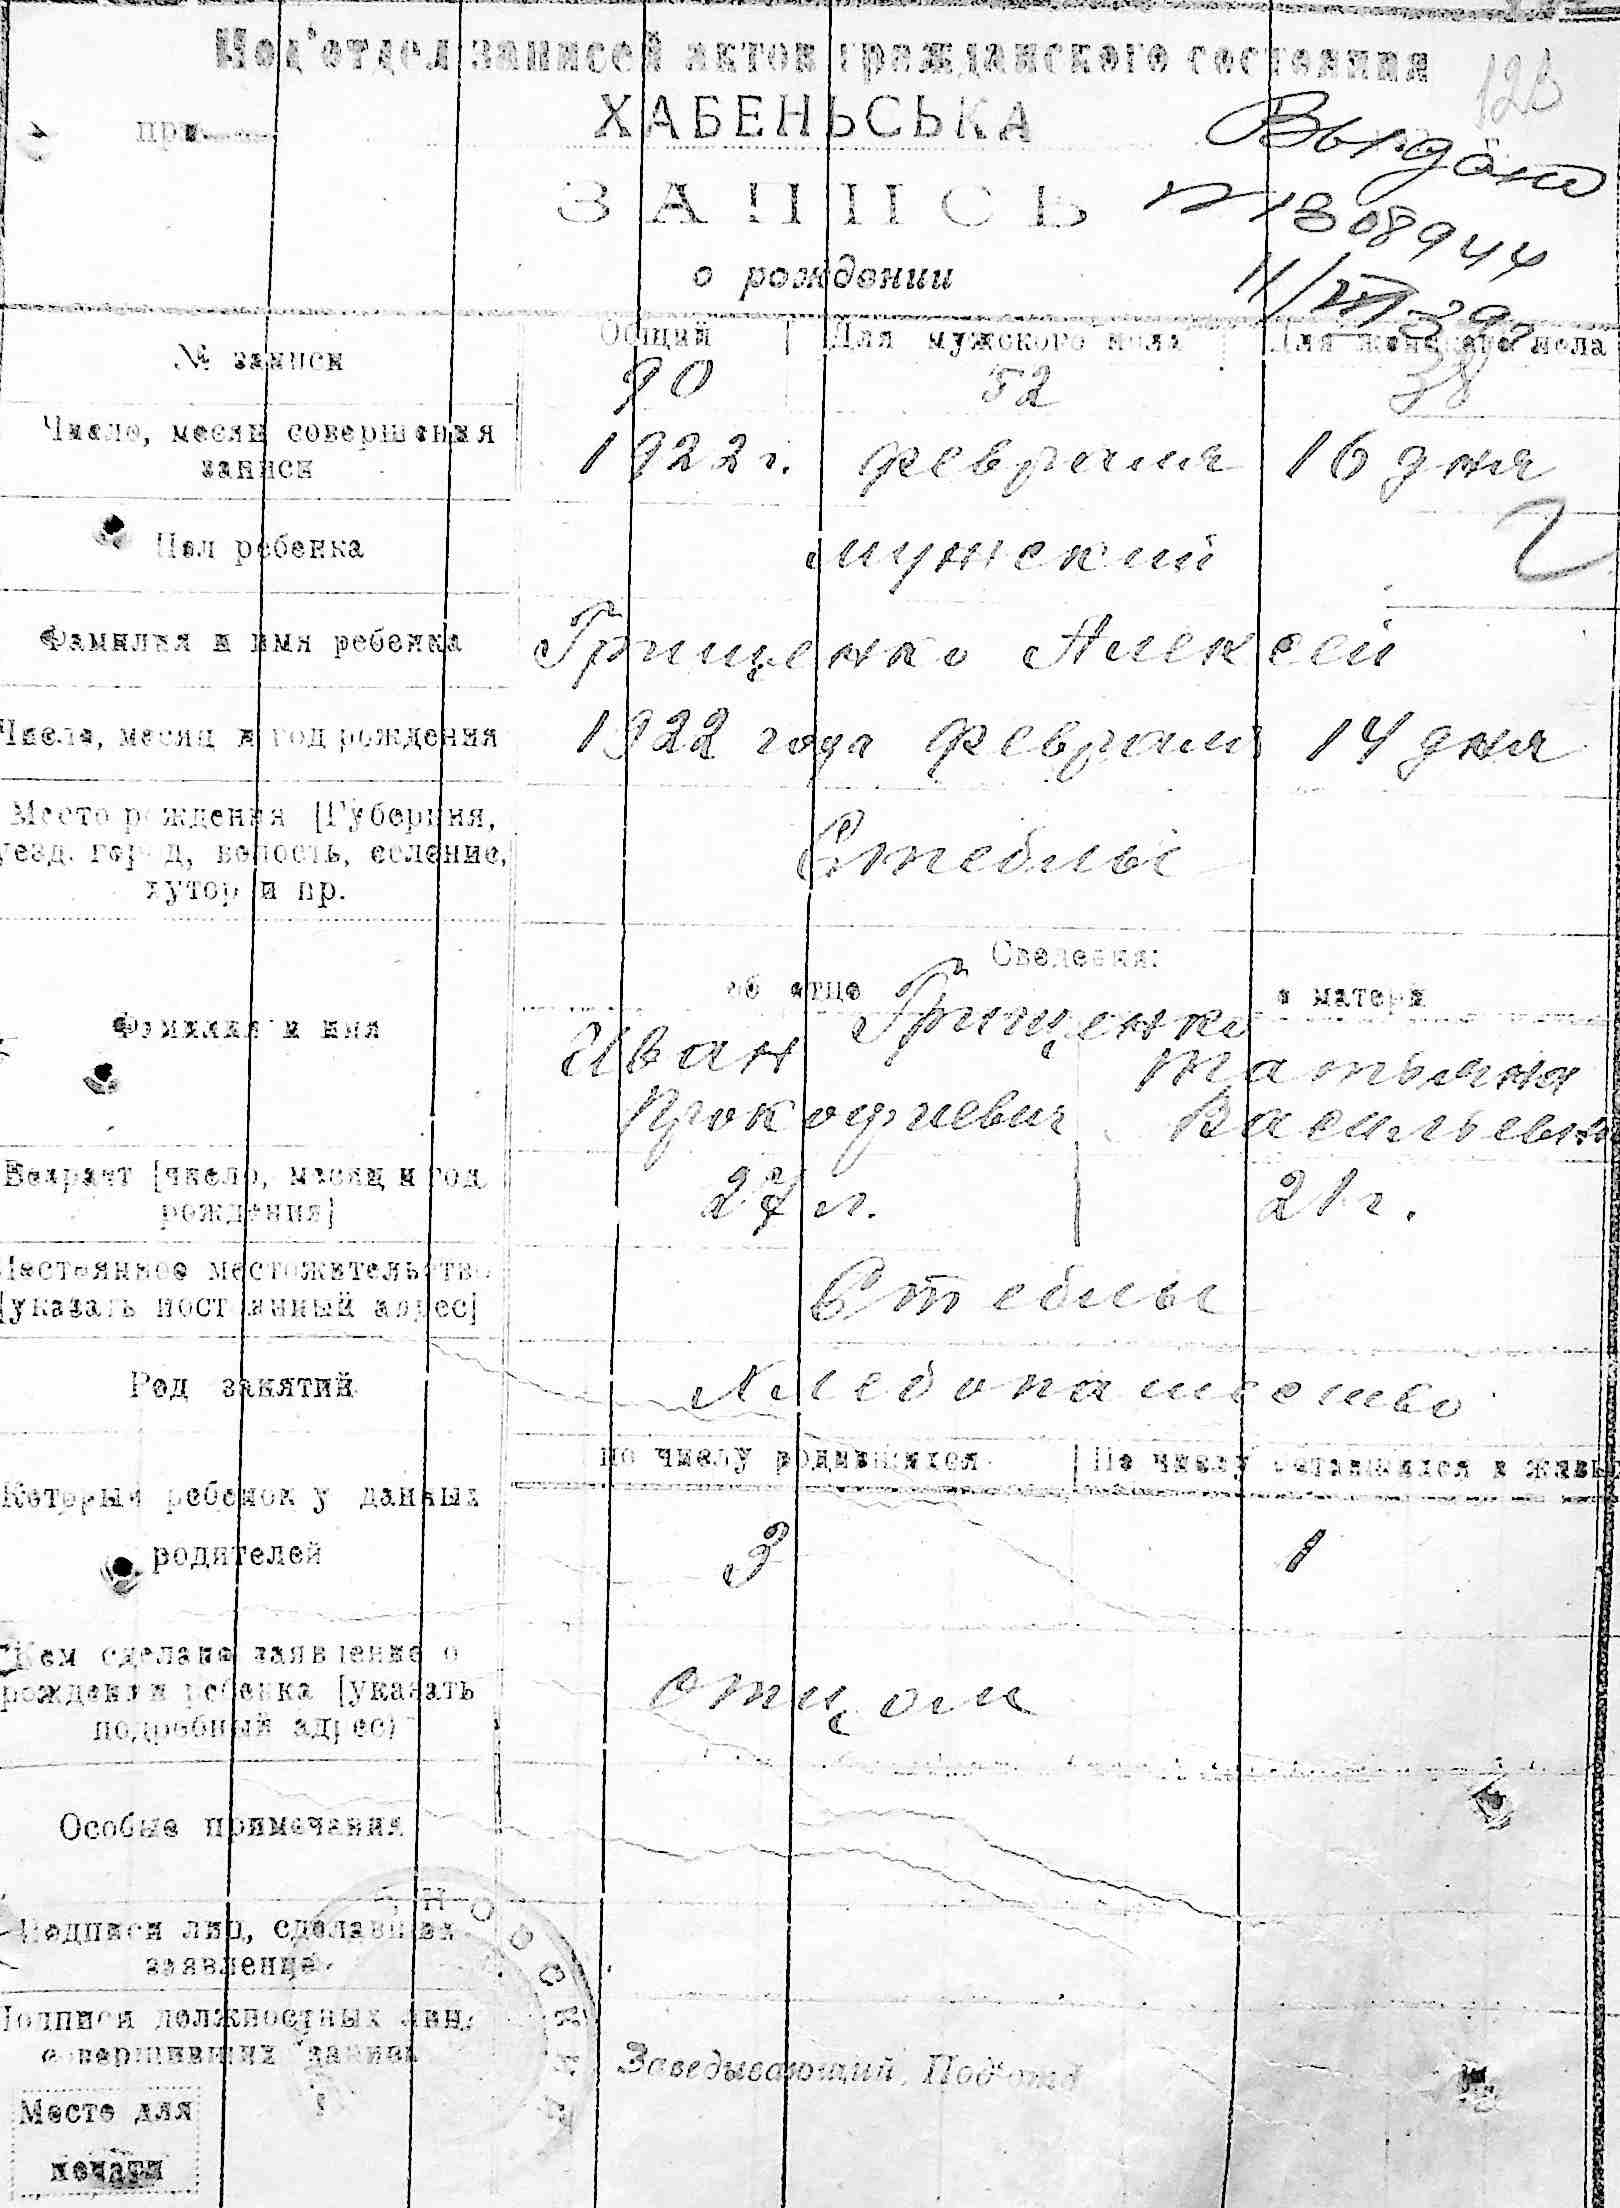 Под'отдел записей актов гражданского состояния
128
при
ХАБЕНЬСЬКА
Выдано
ЗАПИСЬ
№ 1308944
о рождении
11/VII 39
Общий Для мужского пола Для женского пола
№ записи 90 52 38
Число, месяц совершения записи 1922 г. февраля 16 дня
Пол ребенка мужский
Фамилия и имя ребенка Грищенко Алексей
Число, месяц и год рождения 1922 года февраля 14 дня
Место рождения [Губерния,
уезд, город, волость, селение,
хутор и пр. Стеблы
Сведения:
об отце о матери
Фамилия и имя Грищенко
Иван Татьяна
Прокофиевич Васильевна
Возраст [число, месяц и год
рождения] 27 л. 21 г.
Постоянное местожительство
[указать постоянный адрес] Стеблы
Род занятий Хлебопашество
По числу родившихся По числу оставшихся в живых
Который ребенок у данных
родителей 3 1
Кем сделано заявление о
рождении ребенка [указать
подробный адрес) отцом
Особые примечания
Подписи лиц, сделавших
заявление
Подписи должностных лиц,
совершивших запись
Заведывающий Под'отд
Место для
печати